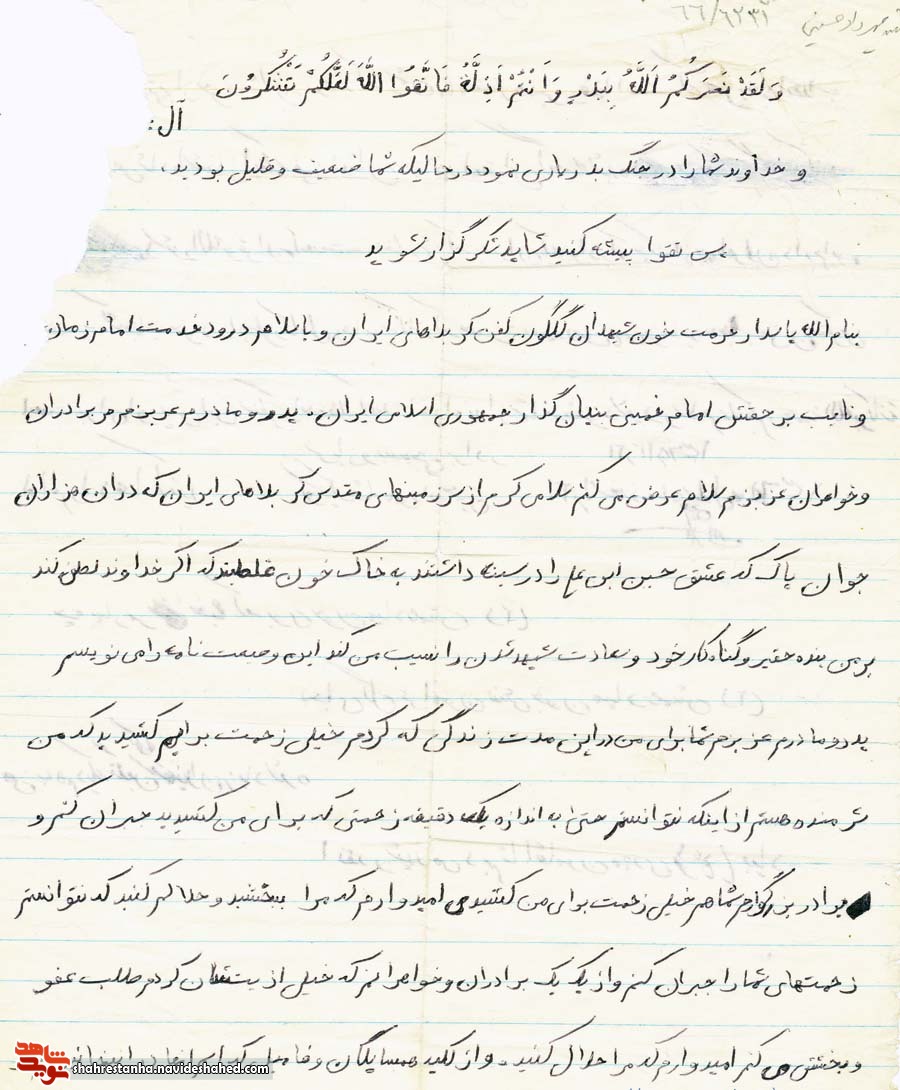 شهید مهرداد حسینی
وَلَقَدْ نَصَرَكُمُ اَللَّهُ بِبَدْرٍ وَاَنْتُمْ اَذِلَّةُ فَاتَّقُوا اللَّهَ لَعَلَّكُمْ تَشْكُرُونَ
آل:
و خداوند شما را در جنگ بدر یاری نمود در حالیکه شما ضعیف و قلیل بودید.
پس تقوا پیشه کنید شاید شکر گزار شوید
بنام الله پاسدار حرمت خون شهیدان گلگون کفن کربلاهای ایران و با سلام درود خدمت امام زمان
و نایب بر حقش امام خمینی بنیان گذار جمهوری اسلامی ایران. پدر و مادرم عزیزم برادران
و خواهران عزیزم سلام عرض می کنم سلامی گرم از سرزمینهای مقدس کربلاهای ایران که در آن هزاران
جوان پاک که عشق حسین ابن ع را در سینه داشتند به خاک خون غلطیند که اگر خداوند لطف کند
بر من بنده حقیر و گناه کار خود و سعادت شهید شدن را نسیب من کند این وصیت نامه را می نویسم
پدر و مادرم عزیزم شما برای من در این مدت زندگی که کردم خیلی زحمت برایم کشیدید که من
شرمنده هستم از اینکه نتوانستم حتی به اندازه یک دقیقه زحمتی که برای من کشیدید جبران کنم و
برادر بزرگوارم شما هم خیلی زحمت برای من کشیدی امیدوارم که مرا ببخشید و حلالم کنید که نتوانستم
زحمتهای شما را جبران کنم و از یک یک برادران و خواهرانم که خیلی ازیتشان کردم طلب عفو
و بخشش می کنم امیدوارم که مرا حلال کنید. و از کلیه همسایگان و
نوید شاهد
chahrestanha.navideshahed.com